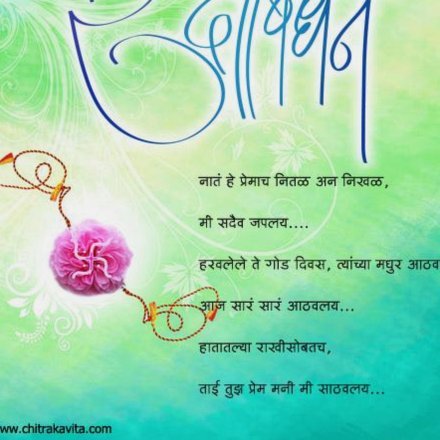 नातं हे प्रेमाच नितळ अन निखळ,
मी सदैव जपलय....
हरवलेले ते गोड दिवस, त्यांच्या मधुर आठव
आज सारं सारं आठवलय...
हातातल्या राखीसोबतच,
ताई तुझ प्रेम मनी मी साठवलय...
www.chitrakavita.com